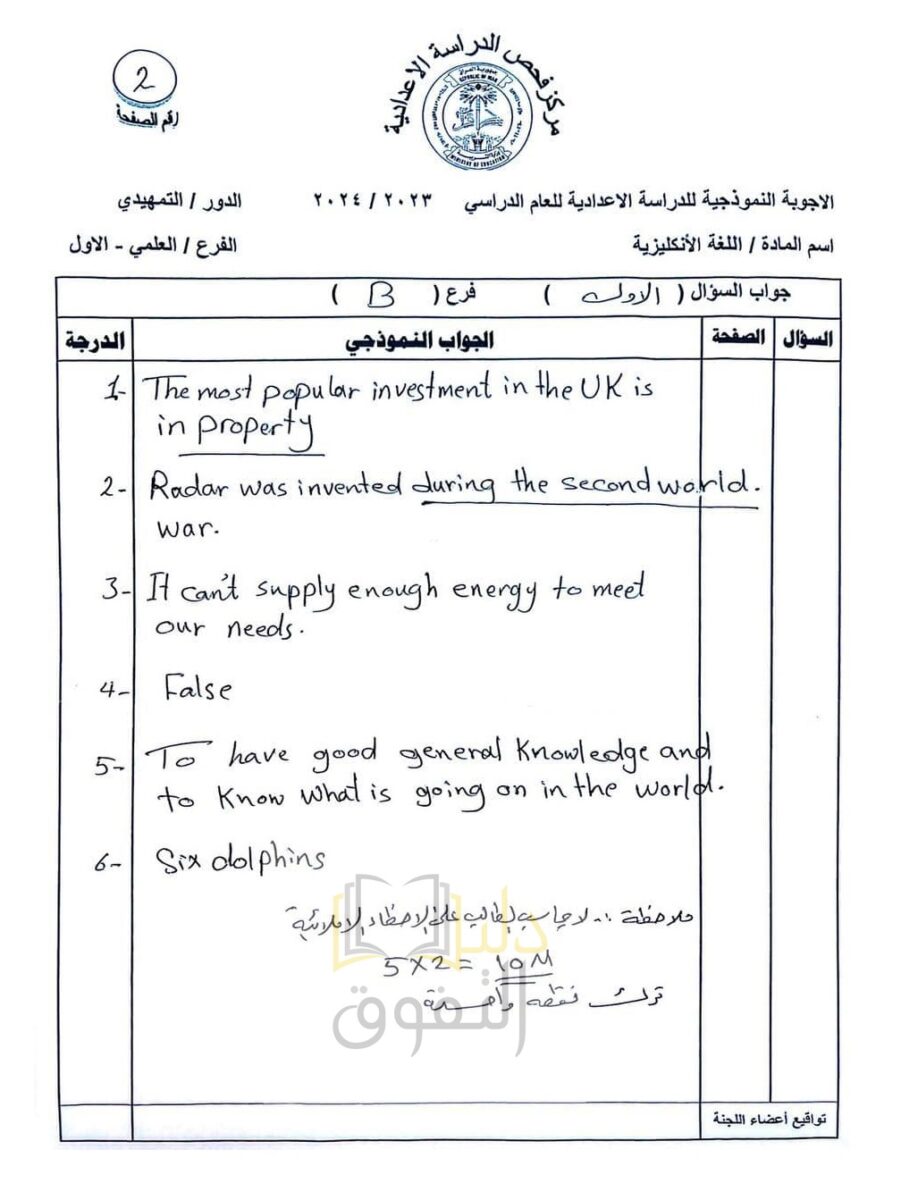 مركز فحص الدراسة الاعدادية
جمهورية العراق
REPUBLIC OF IRAQ
وزارة التربية
MINISTRY OF EDUCATION
2
رقم الصفحة
الاجوبة النموذجية للدراسة الاعدادية للعام الدراسي ٢٠٢٣ / ٢٠٢٤ الدور / التمهيدي
اسم المادة / اللغة الأنكليزية الفرع / العلمي - الاول
جواب السؤال ( الاول ) فرع ( B )
السؤال الصفحة الجواب النموذجي الدرجة
1- The most popular investment in the UK is
in property
2- Radar was invented during the second world.
war.
3- It can't supply enough energy to meet
our needs.
4- False
5- To have good general knowledge and
to know what is going on in the world.
6- Six dolphins
ملاحظة :. لا يحاسب الطالب على الاخطاء الاملائية
5 × 2 = 10 M
ترك نقطة واحدة
دليل
التفوق
تواقيع أعضاء اللجنة